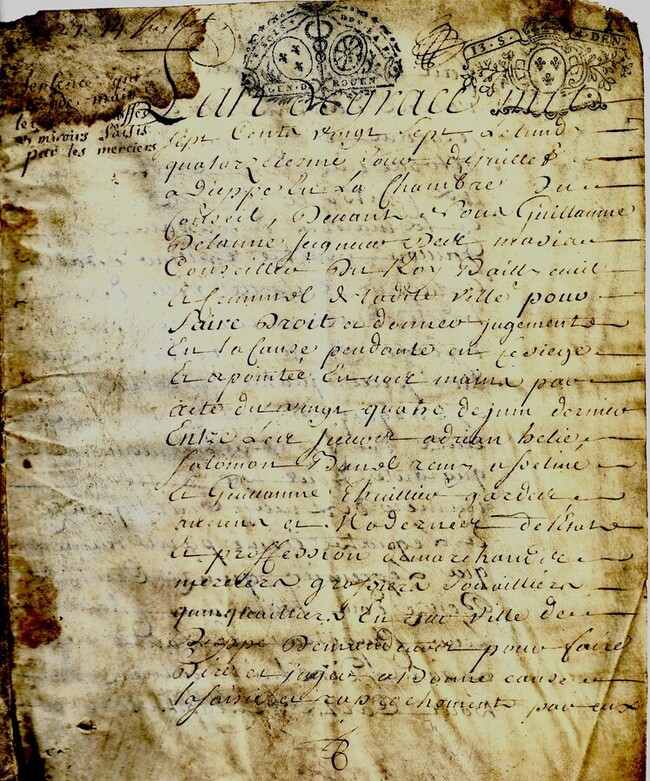 27. 14 Juillet
GEN. D ROUEN
13. S. 4. DEN.
Sentence qui
et miroirs saisis
par les merciers
L'an de grace mil
Sept Cents vingt Sept Le lund
quatorzieme Jour de juillet
a Dieppe En La Chambre Du
Conseil, Devant Nous Guillaume
Delaune Seigneur
Conseiller Du Roy Bailly civil
Et Criminel de ladite Ville pour
faire Droit et donner jugement
En la Cause pendante en ce siege
Et apointée En noz mains par
acte du vingt quatre de juin dernier
Entre Les Sieurs adrian helie,
Salomon asseline
Et Guillaume Thuillier gardes
anciens et Modernes de l'Etat
Et proffession de marchands
merciers grossiers Jouailliers
quinquailliers En cette Ville de
Dieppe Demandeurs pour faire
Dire et juger a bonne cause
la saisie et aprochement par eux